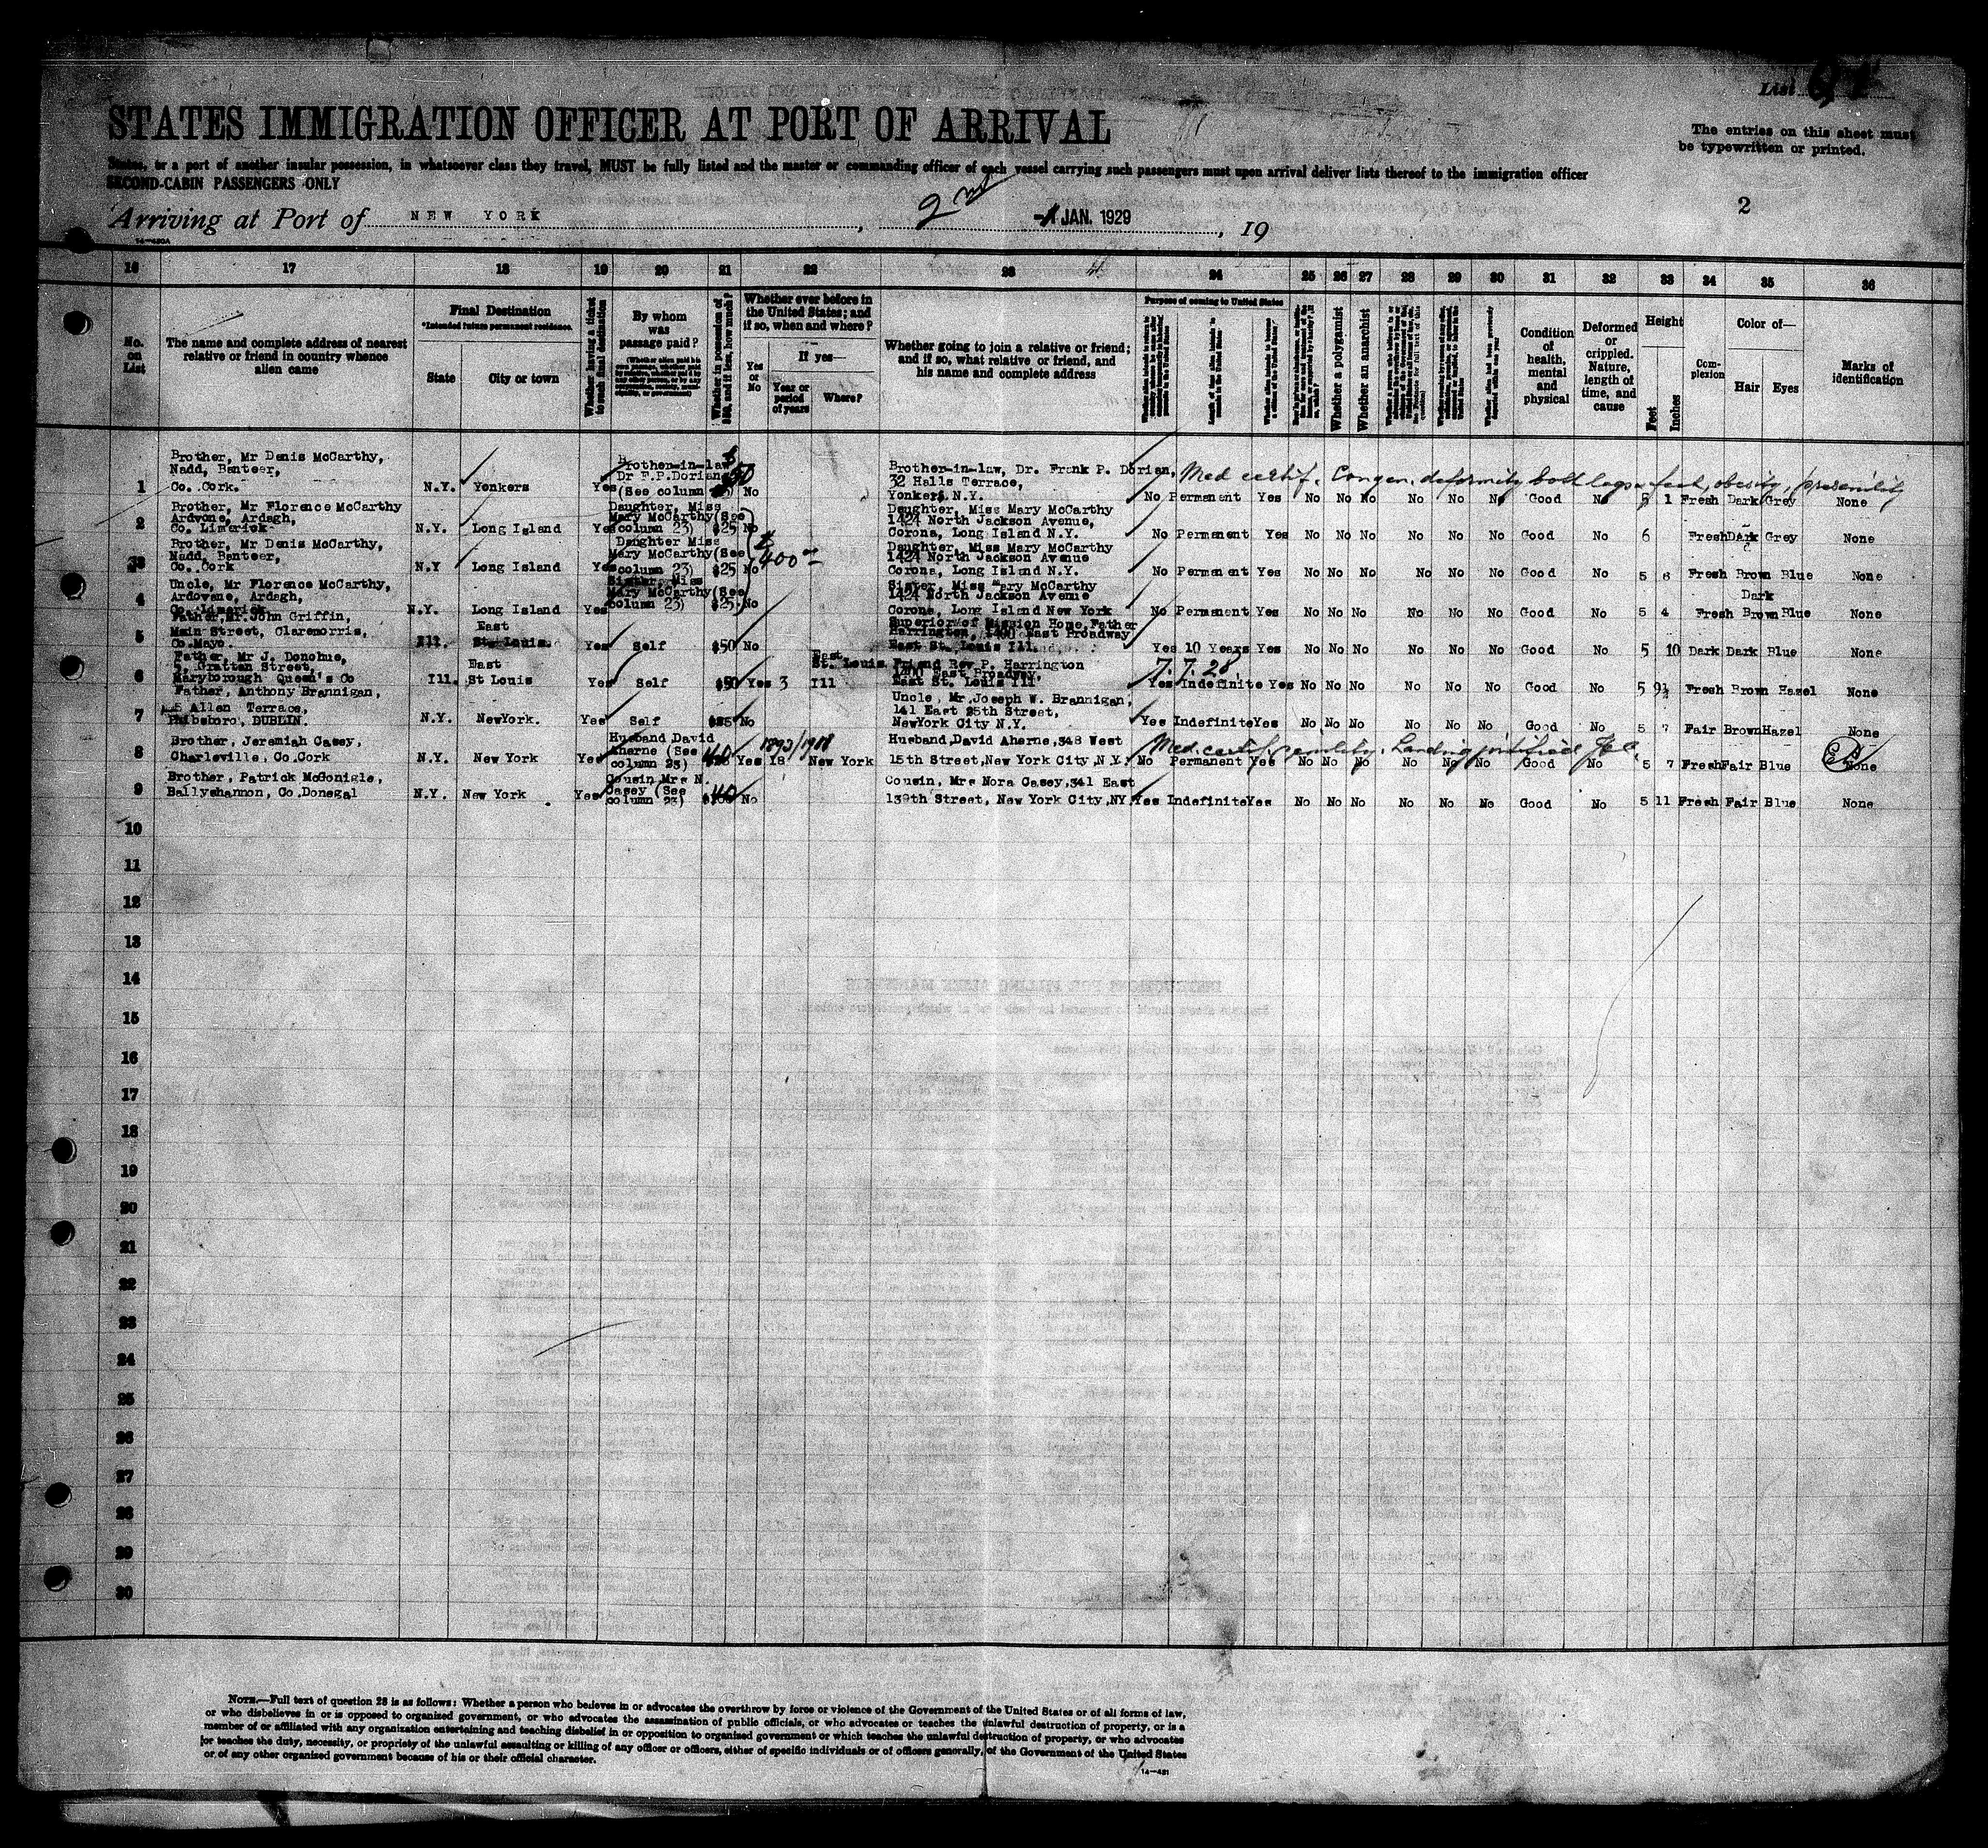 List
STATES IMMIGRATION OFFICER AT PORT OF ARRIVAL
The entries on this sheet must
be typewritten or printed.
States, or a port of another insular possession, in whatsoever class they travel, MUST be fully listed and the master or commanding officer of each vessel carrying such passengers must upon arrival deliver lists thereof to the immigration officer
SECOND-CABIN PASSENGERS ONLY
2
Arriving at Port of NEW YORK, 2nd JAN. 1929, 19
16 17 18 19 20 21 22 23 24 25 26 27 28 29 30 31 32 33 34 35 36
No. on List
The name and complete address of nearest relative or friend in country whence alien came
Final Destination
*Intended future permanent residence.
State
City or town
Whether having a ticket to such final destination
By whom was passage paid?
Whether in possession of $50, and if less, how much?
Whether ever before in the United States; and if so, when and where?
Yes or No
If yes—
Year or period of years
Where?
Whether going to join a relative or friend; and if so, what relative or friend, and his name and complete address
Purpose of coming to United States
Whether a polygamist
Whether an anarchist
Condition of health, mental and physical
Deformed or crippled. Nature, length of time, and cause
Height
Feet
Inches
Complexion
Color of—
Hair
Eyes
Marks of identification
1 Brother, Mr Denis McCarthy, Nadd, Banteer, Co. Cork. N.Y. Yonkers Yes Brother-in-law Dr F.P.Dorian (See column 23) $50 No Brother-in-law, Dr. Frank P. Dorian, 32 Halls Terrace, Yonkers N.Y. No Permanent Yes No No No No No No Good No 5 1 Fresh Dark Grey None
Med certif. Congen. deformity both legs & feet, obesity, presenility
2 Brother, Mr Florence McCarthy Ardvone, Ardagh, Co. Limerick N.Y. Long Island Yes Daughter, Miss Mary McCarthy (See column 23) $25 No Daughter, Miss Mary McCarthy 1424 North Jackson Avenue, Corona, Long Island N.Y. No Permanent Yes No No No No No No Good No 6 Fresh Dark Grey None
$400
3 Brother, Mr Denis McCarthy, Nadd, Banteer, Co. Cork N.Y Long Island Yes Daughter Miss Mary McCarthy (See column 23) $25 No Daughter, Miss Mary McCarthy 1424 North Jackson Avenue Corona, Long Island N.Y. No Permanent Yes No No No No No No Good No 5 6 Fresh Brown Blue None
4 Uncle, Mr Florence McCarthy, Ardovone, Ardagh, Co. Limerick N.Y. Long Island Yes Sister, Miss Mary McCarthy (See column 23) $25 No Sister, Miss Mary McCarthy 1424 North Jackson Avenue Corona, Long Island New York No Permanent Yes No No No No No No Good No 5 4 Fresh Dark Brown Blue None
5 Father, Mr. John Griffin, Main Street, Claremorris, Co. Mayo. Ill. East St. Louis. Yes Self $50 No Superior of Mission Home, Father Harrington, 1400 East Broadway East St. Louis Ill. Yes 10 Years Yes No No No No No No Good No 5 10 Dark Dark Blue None
6 Father, Mr J. Donohue, Grattan Street, Maryborough Queen's Co Ill. East St Louis Yes Self $50 Yes 3 East St. Louis Ill Friend Rev P. Harrington 1400 East Broadway, East St. Louis Ill Yes Indefinite Yes No No No No No No Good No 5 9½ Fresh Brown Hazel None
7.7.28
7 Father, Anthony Brannigan, 5 Allen Terrace, Phibsboro, DUBLIN. N.Y. NewYork. Yes Self $25 No Uncle, Mr. Joseph W. Brannigan, 141 East 25th Street, NewYork City N.Y. Yes Indefinite Yes No No No No No No Good No 5 7 Fair Brown Hazel None
8 Brother, Jeremiah Casey, Charleville, Co. Cork N.Y. New York Yes Husband David Aherne (See column 23) 40 Yes 18 1892/1908 New York Husband, David Aherne, 348 West 15th Street, New York City, N.Y. No Permanent Yes No No No No No No Good No 5 7 Fresh Fair Blue None
Med. certif. senility. Landing justified
9 Brother, Patrick McGonigle, Ballyshannon, Co. Donegal N.Y. New York Yes Cousin Mrs N. Casey (See column 23) 40 No Cousin, Mrs Nora Casey, 341 East 139th Street, New York City, NY. Yes Indefinite Yes No No No No No No Good No 5 11 Fresh Fair Blue None
10
11
12
13
14
15
16
17
18
19
20
21
22
23
24
25
26
27
28
29
30
NOTE.—Full text of question 28 is as follows: Whether a person who believes in or advocates the overthrow by force or violence of the Government of the United States or of all forms of law,
or who disbelieves in or is opposed to organized government, or who advocates the assassination of public officials, or who advocates or teaches the unlawful destruction of property, or is a
member of or affiliated with any organization entertaining and teaching disbelief in or opposition to organized government or which teaches the unlawful destruction of property, or who advocates
or teaches the duty, necessity, or propriety of the unlawful assaulting or killing of any officer or officers, either of specific individuals or of officers generally, of the Government of the United States
or of any other organized government because of his or their official character.
14—481